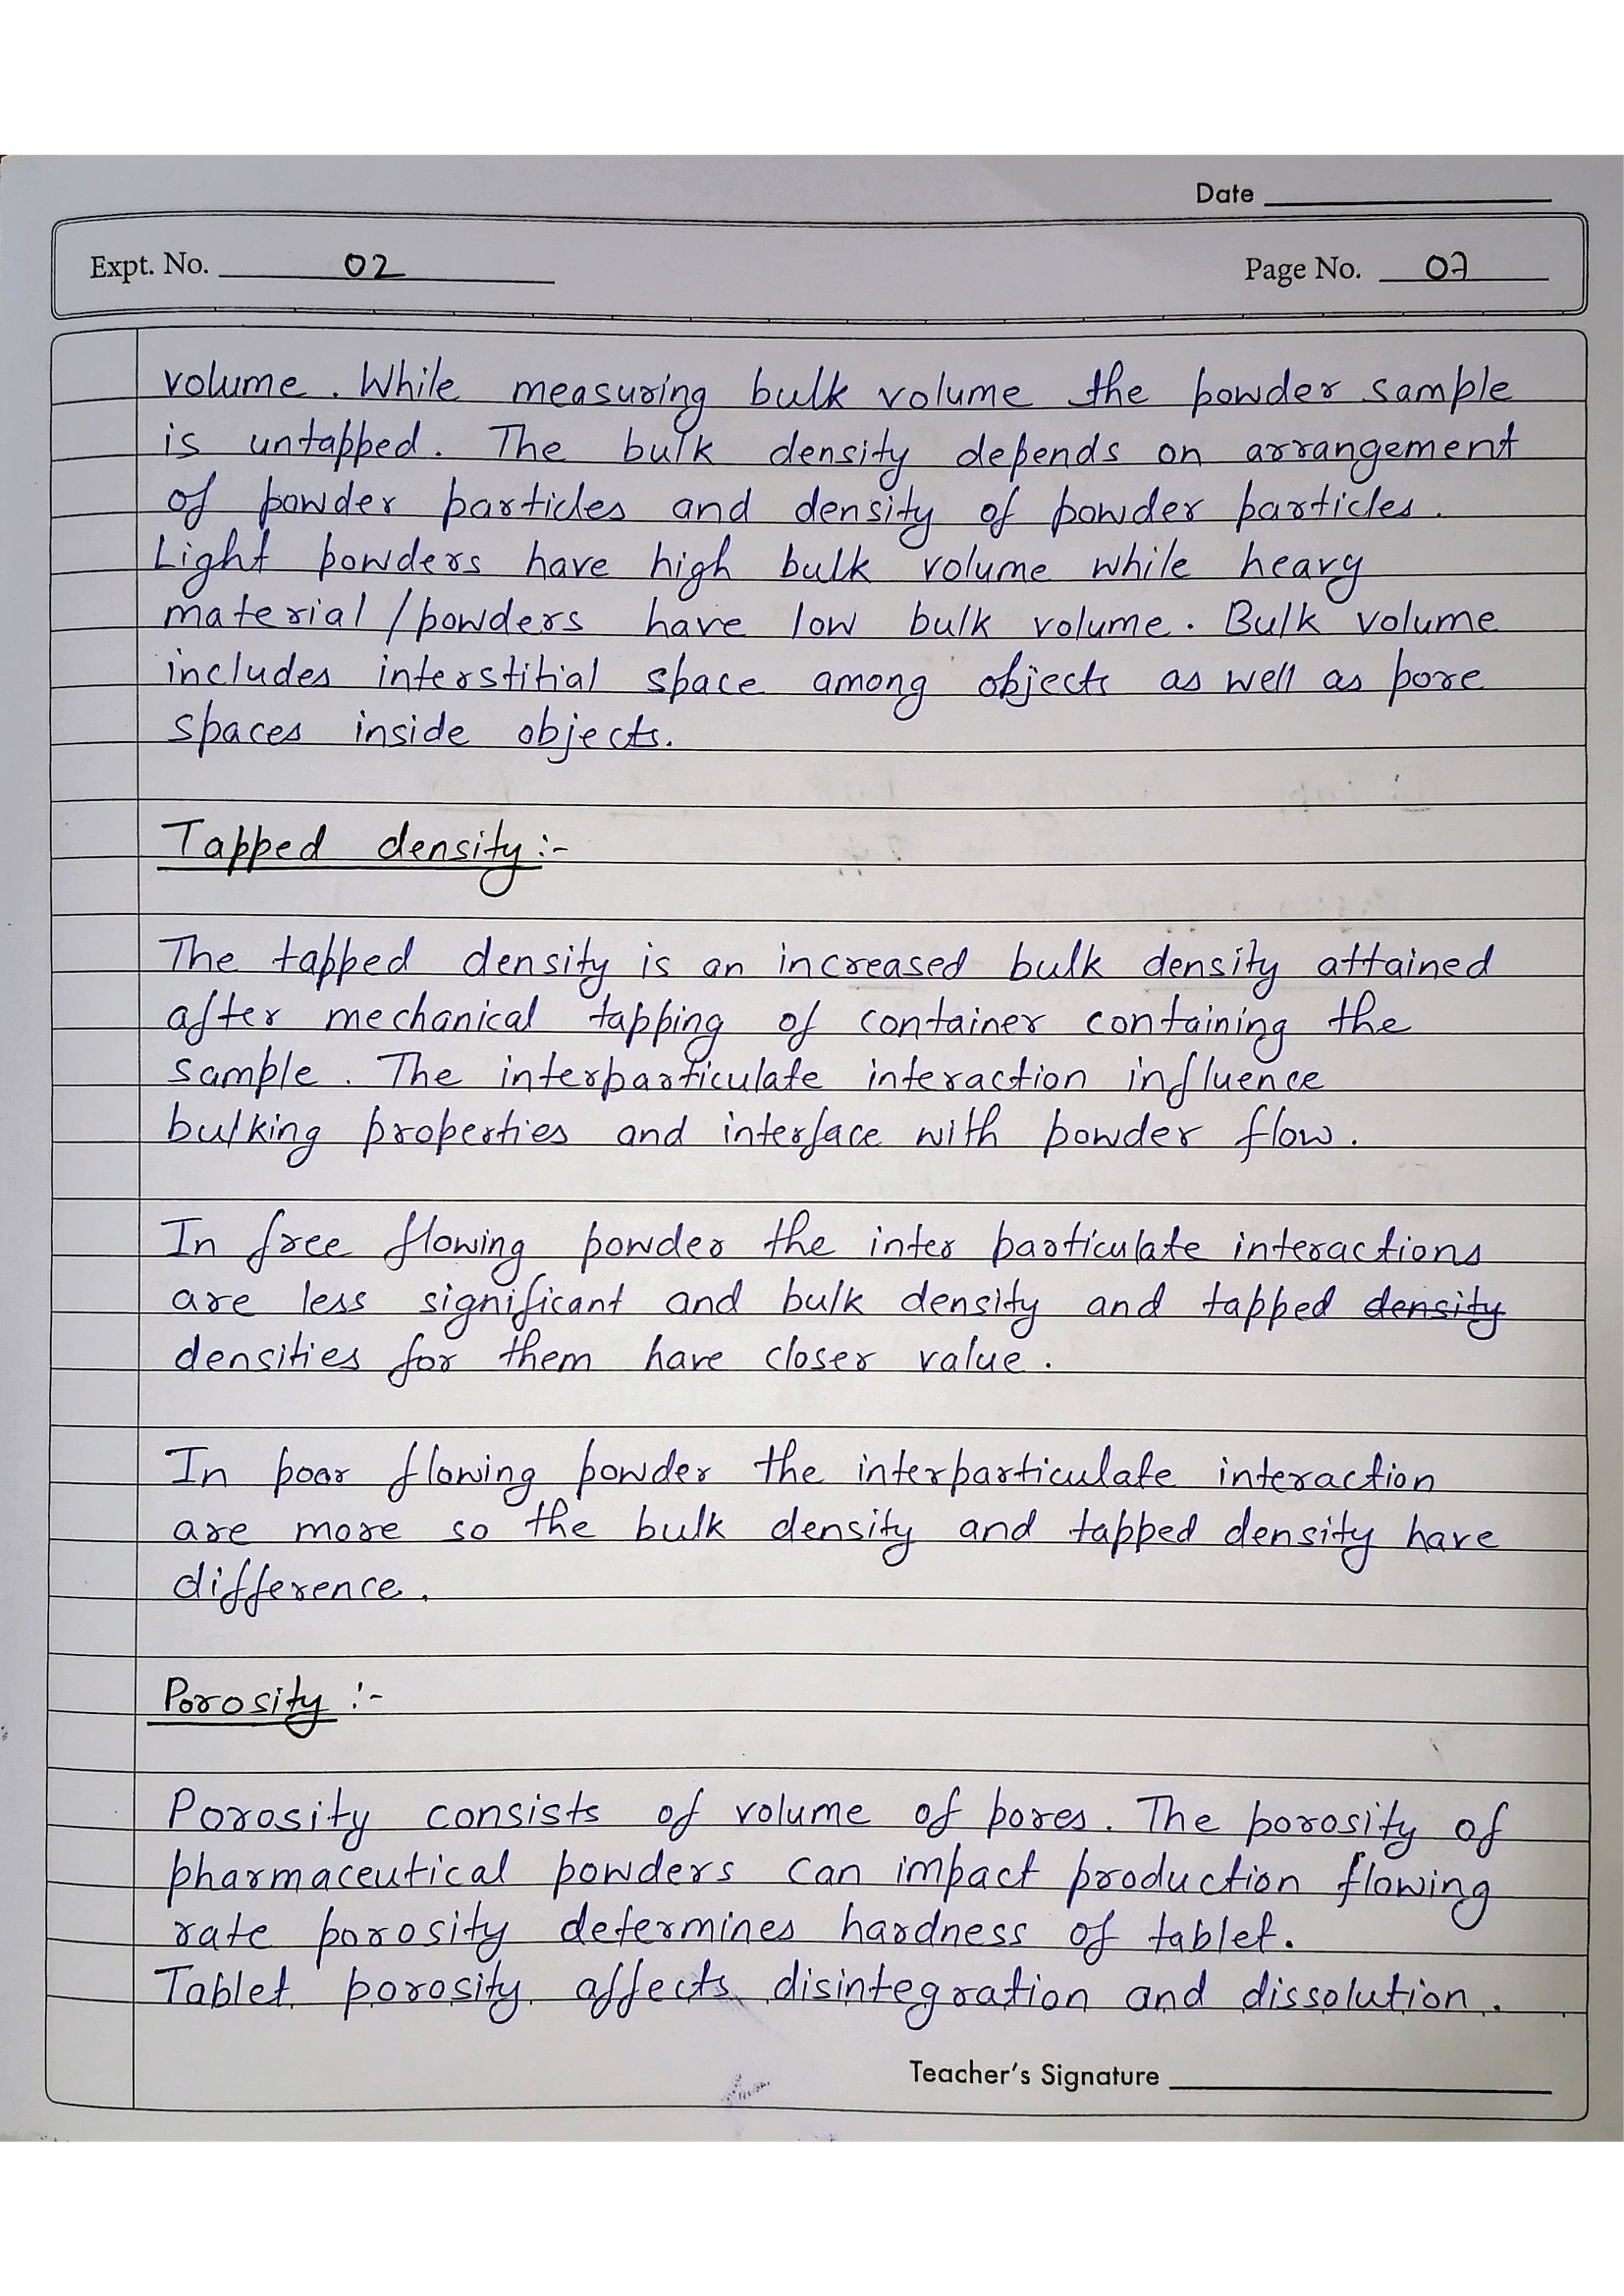 Date
Expt. No. 02 Page No. 07
volume. While measuring bulk volume the powder sample
is untapped. The bulk density depends on arrangement
of powder particles and density of powder particles.
Light powders have high bulk volume while heavy
material/powders have low bulk volume. Bulk volume
includes interstitial space among objects as well as pore
spaces inside objects.
Tapped density:-
The tapped density is an increased bulk density attained
after mechanical tapping of container containing the
sample. The interparticulate interaction influence
bulking properties and interface with powder flow.
In free flowing powder the inter particulate interactions
are less significant and bulk density and tapped density
densities for them have closer value.
In poor flowing powder the interparticulate interaction
are more so the bulk density and tapped density have
difference.
Porosity :-
Porosity consists of volume of pores. The porosity of
pharmaceutical powders can impact production flowing
rate porosity determines hardness of tablet.
Tablet porosity affects disintegration and dissolution.
Teacher's Signature